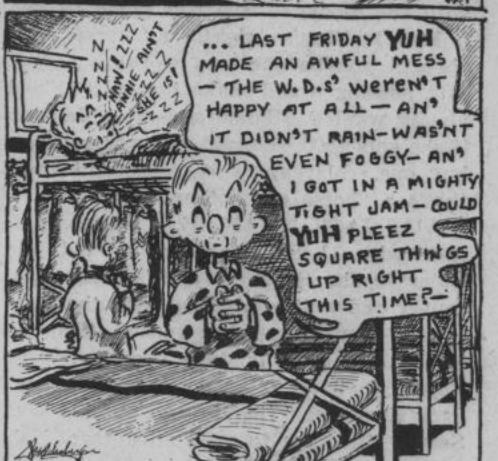 ZZZZ
NAW! ZZZ
ANNIE AIN'T
ZEZZ
SHE IS!
ZZZZ
... LAST FRIDAY YUH
MADE AN AWFUL MESS
— THE W.D.s' WEREN'T
HAPPY AT ALL — AN'
IT DIDN'T RAIN-WASN'T
EVEN FOGGY- AN'
I GOT IN A MIGHTY
TIGHT JAM - COULD
YUH PLEEZ
SQUARE THINGS
UP RIGHT
THIS TIME?-